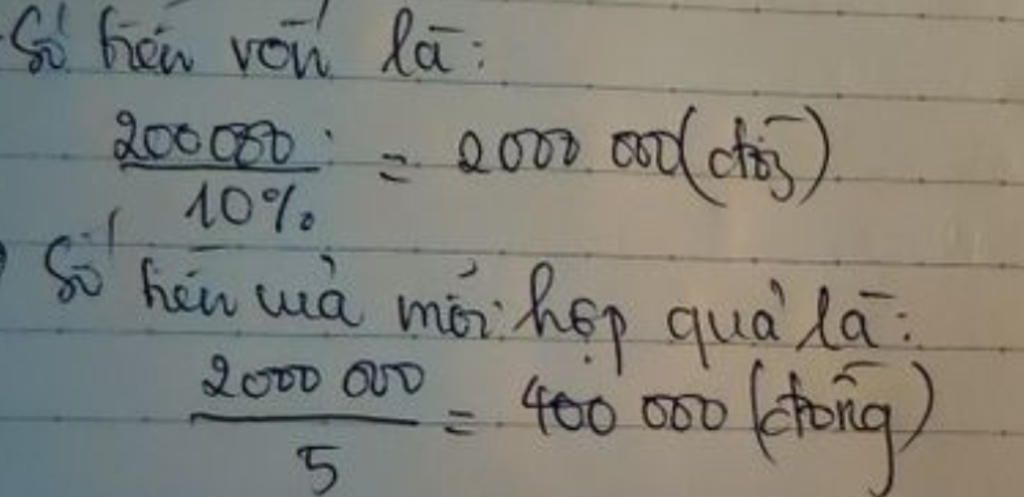 Số tiền vốn là:
200 000 / 10% = 2 000 000 (đồng)
Số tiền của mỗi hộp quà là:
2 000 000 / 5 = 400 000 (đồng)